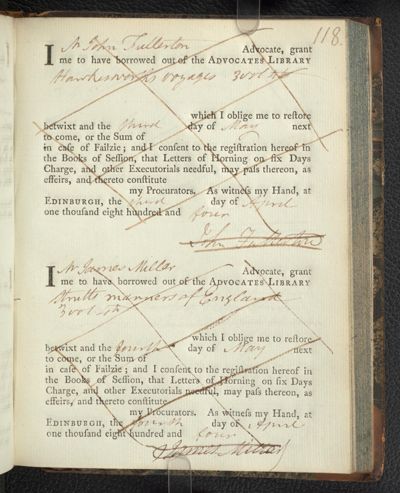 118.
I Mr John Fullerton Advocate, grant
me to have borrowed out of the ADVOCATES LIBRARY
Hawkesworths voyages 3 vol
which I oblige me to reſtore
betwixt and the third day of May next
to come, or the Sum of
in caſe of Failzie; and I conſent to the regiſtration hereof in
the Books of Seſſion, that Letters of Horning on ſix Days
Charge, and other Executorials needful, may paſs thereon, as
effeirs, and thereto conſtitute
my Procurators. As witneſs my Hand, at
EDINBURGH, the third day of April
one thouſand eight hundred and four
John Fullerton
I Mr James Miller Advocate, grant
me to have borrowed out of the ADVOCATES LIBRARY
Strutts manners of England
3 vol
which I oblige me to reſtore
betwixt and the fourth day of May next
to come, or the Sum of
in caſe of Failzie; and I conſent to the regiſtration hereof in
the Books of Seſſion, that Letters of Horning on ſix Days
Charge, and other Executorials needful, may paſs thereon, as
effeirs, and thereto conſtitute
my Procurators. As witneſs my Hand, at
EDINBURGH, the fourth day of April
one thouſand eight hundred and four
James Miller